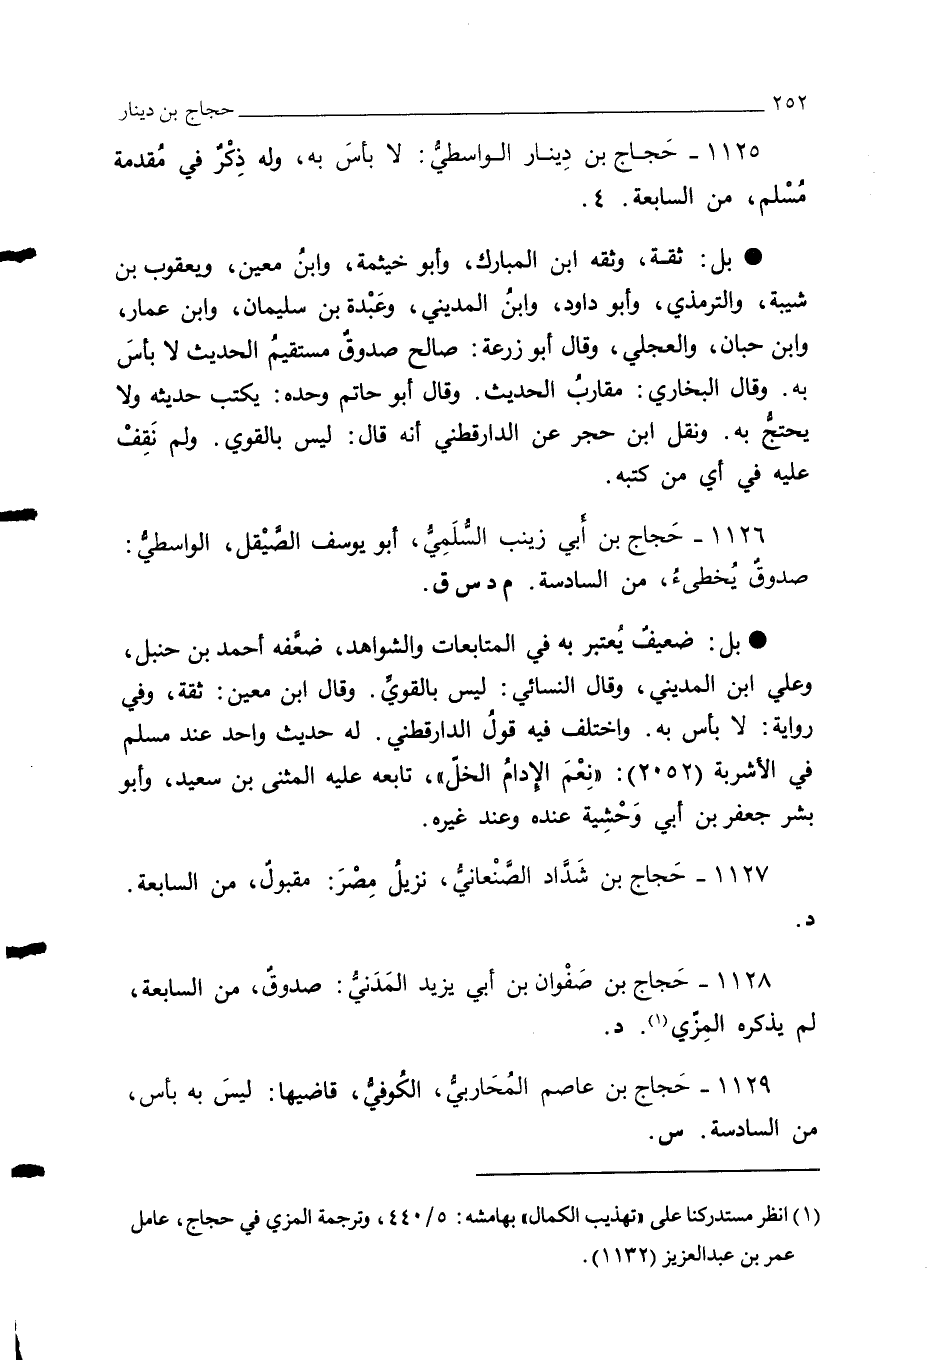 ٢٥٢ حجاج بن دينار
١١٢٥ ـ حَجـاج بن دِينـار الـواسطيُّ: لا بأسَ به، وله ذِكْرٌ في مُقدمة
مُسْلم، من السابعة. ٤.
● بل: ثقـة، وثقه ابن المبارك، وأبو خيثمة، وابنُ معين، ويعقوب بن
شيبة، والترمذي، وأبو داود، وابنُ المديني، وعَبْدة بن سليمان، وابن عمار،
وابن حبان، والعجلي، وقال أبو زرعة: صالح صدوقٌ مستقيمُ الحديث لا بأسَ
به. وقال البخاري: مقاربُ الحديث. وقال أبو حاتم وحده: يكتب حديثه ولا
يحتجُّ به. ونقل ابن حجر عن الدارقطني أنه قال: ليس بالقوي. ولم نَقِفْ
عليه في أي من كتبه.
١١٢٦ ـ حَجاج بن أَبي زينب السُّلَمِيُّ، أبو يوسف الصَّيْقل، الواسطيُّ:
صدوقٌ يُخطىءُ، من السادسة. م د س ق.
● بل: ضعيفٌ يُعتبر به في المتابعات والشواهد، ضعَّفه أحمد بن حنبل،
وعلي ابن المديني، وقال النسائي: ليس بالقويِّ. وقال ابن معين: ثقة، وفي
رواية: لا بأس به. واختلف فيه قولُ الدارقطني. له حديث واحد عند مسلم
في الأشربة (٢٠٥٢): «نِعْمَ الإدامُ الخلّ»، تابعه عليه المثنى بن سعيد، وأبو
بشر جعفر بن أبي وَحْشِية عنده وعند غيره.
١١٢٧ ـ حَجاج بن شَدَّاد الصَّنْعانيُّ، نزيلُ مِصْرَ: مقبولٌ، من السابعة.
د.
١١٢٨ ـ حَجاج بن صَفْوان بن أبي يزيد المَدَنيُّ: صدوقٌ، من السابعة،
لم يذكره المِزّي(١). د.
١١٢٩ ـ حَجاج بن عاصم المُحَاربيُّ، الكُوفيُّ، قاضيها: ليسَ به بأس،
من السادسة. س.
(١) انظر مستدركنا على «تهذيب الكمال» بهامشه: ٤٤٠/٥، وترجمة المزي في حجاج، عامل
عمر بن عبدالعزيز (١١٣٢).